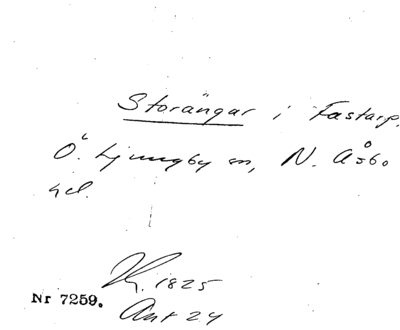 Storängar i Fastarp.
Ö. Ljungby sn, N. Åsbo
hd.
K. 1825
Nr 7259.
Ant 24